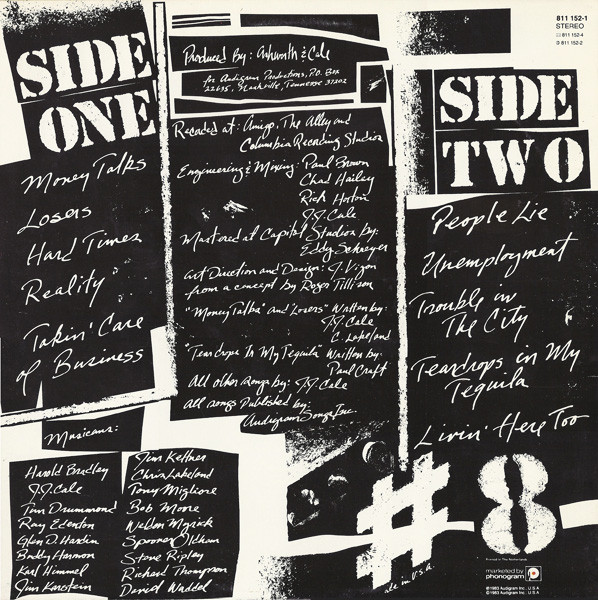 SIDE
ONE
Money Talks
Losers
Hard Times
Reality
Takin' Care
of Business
Produced By: Ashworth & Cale
for Audigram Productions, P.O. Box
22635, Nashville, Tennessee 37202
Recorded at: Amigo, The Alley and
Columbia Recording Studios
Engineering & Mixing: Paul Brown
Chad Hailey
Rick Horton
J.J. Cale
Mastered at Capitol Studios by:
Eddy Schreyer
Art Direction and Design: J. Vigon
from a concept by Roger Tillison
"Money Talks" and Losers" Written by:
J.J. Cale
C. Lakeland
"Teardrops In My Tequila" Written by:
Paul Craft
All other songs by: J.J. Cale
All songs Published by:
Audigram Songs Inc.
811 152-1
STEREO
811 152-4
811 152-2
SIDE
TWO
People Lie
Unemployment
Trouble in
The City
Teardrops in My
Tequila
Livin' Here Too
Musicians:
Harold Bradley
J.J. Cale
Tom Drummond
Ray Edenton
Glen D. Hardin
Buddy Harmon
Karl Himmel
Jim Karstein
Jim Keltner
Chris Lakeland
Tony Migliore
Bob Moore
Weldon Myrick
Spooner Oldham
Steve Ripley
Richard Thompson
David Waddel
#8
Printed in The Netherlands
marketed by
phonogram
© 1983 Audigram Inc., U.S.A.
℗ 1983 Audigram Inc., U.S.A.